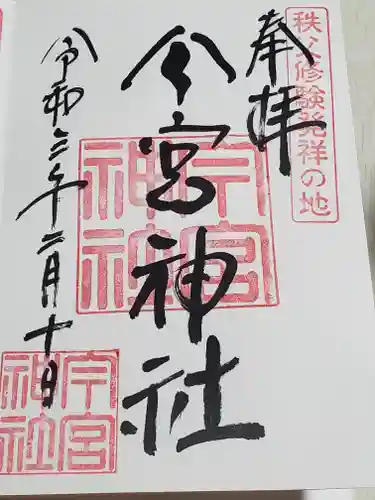 秩父修験発祥の地
奉拝
今宮神社
令和六年二月十日
今宮神社
今宮神社